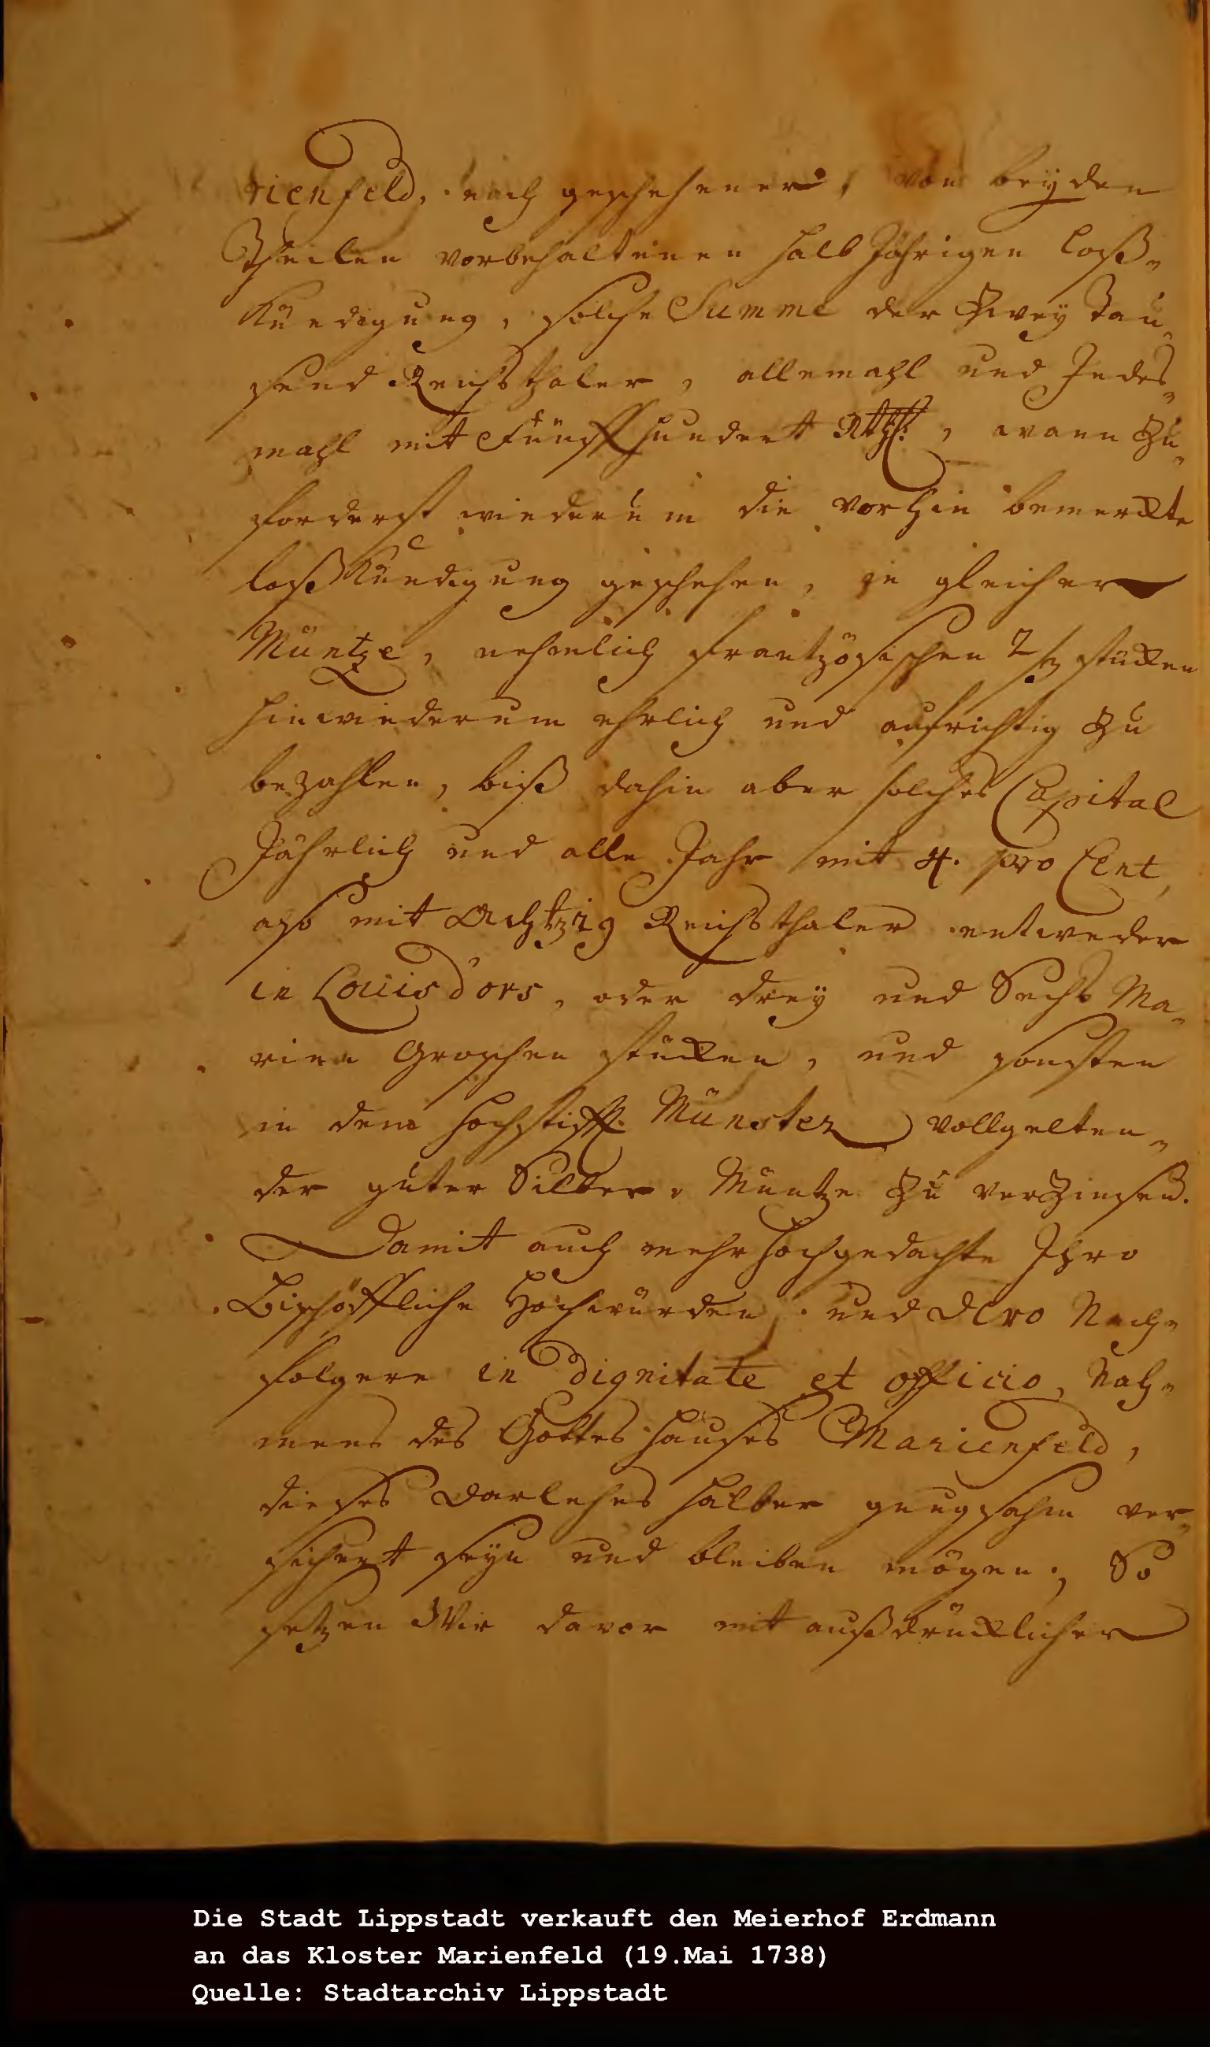 rienfeld, nach geschehener, von beyden
Theilen vorbehaltenen halb Jährigen Loß-
Kündigung, solche Summe der Zwey Tau-
send Reichsthaler, allemahl und Jedes-
mahl mit Fünffhundert Rthlr., wann zu-
forderst wiederum die vorhin bemerckte
loßKündigung geschehen, in gleicher
Müntze, nehmlich frantzösischen 2/3 stücken
hinwiederum ehrlich und aufrichtig zu
bezahlen, biß dahin aber solches Capital
Jährlich und alle Jahr mit 4. pro Cent,
also mit Achtzig Reichsthaler entweder
in Louis d'ors, oder drey und Sechs Ma-
rien Groschen stücken, und sonsten
in dem Hochstifft Münster vollgelten-
der guter Silber-Müntze zu verzinsen.
Damit auch mehrhochgedachte Ihro
Bischöffliche Hochwürden und Dero Nach-
folgere in dignitate et officio, Nah-
mens des Gottes Hauses Marienfeld,
dieses Darlehns halber gnugsahm ver-
sichert seyn und bleiben mögen; So
setzen Wir davor mit außdrücklicher
Die Stadt Lippstadt verkauft den Meierhof Erdmann
an das Kloster Marienfeld (19.Mai 1738)
Quelle: Stadtarchiv Lippstadt